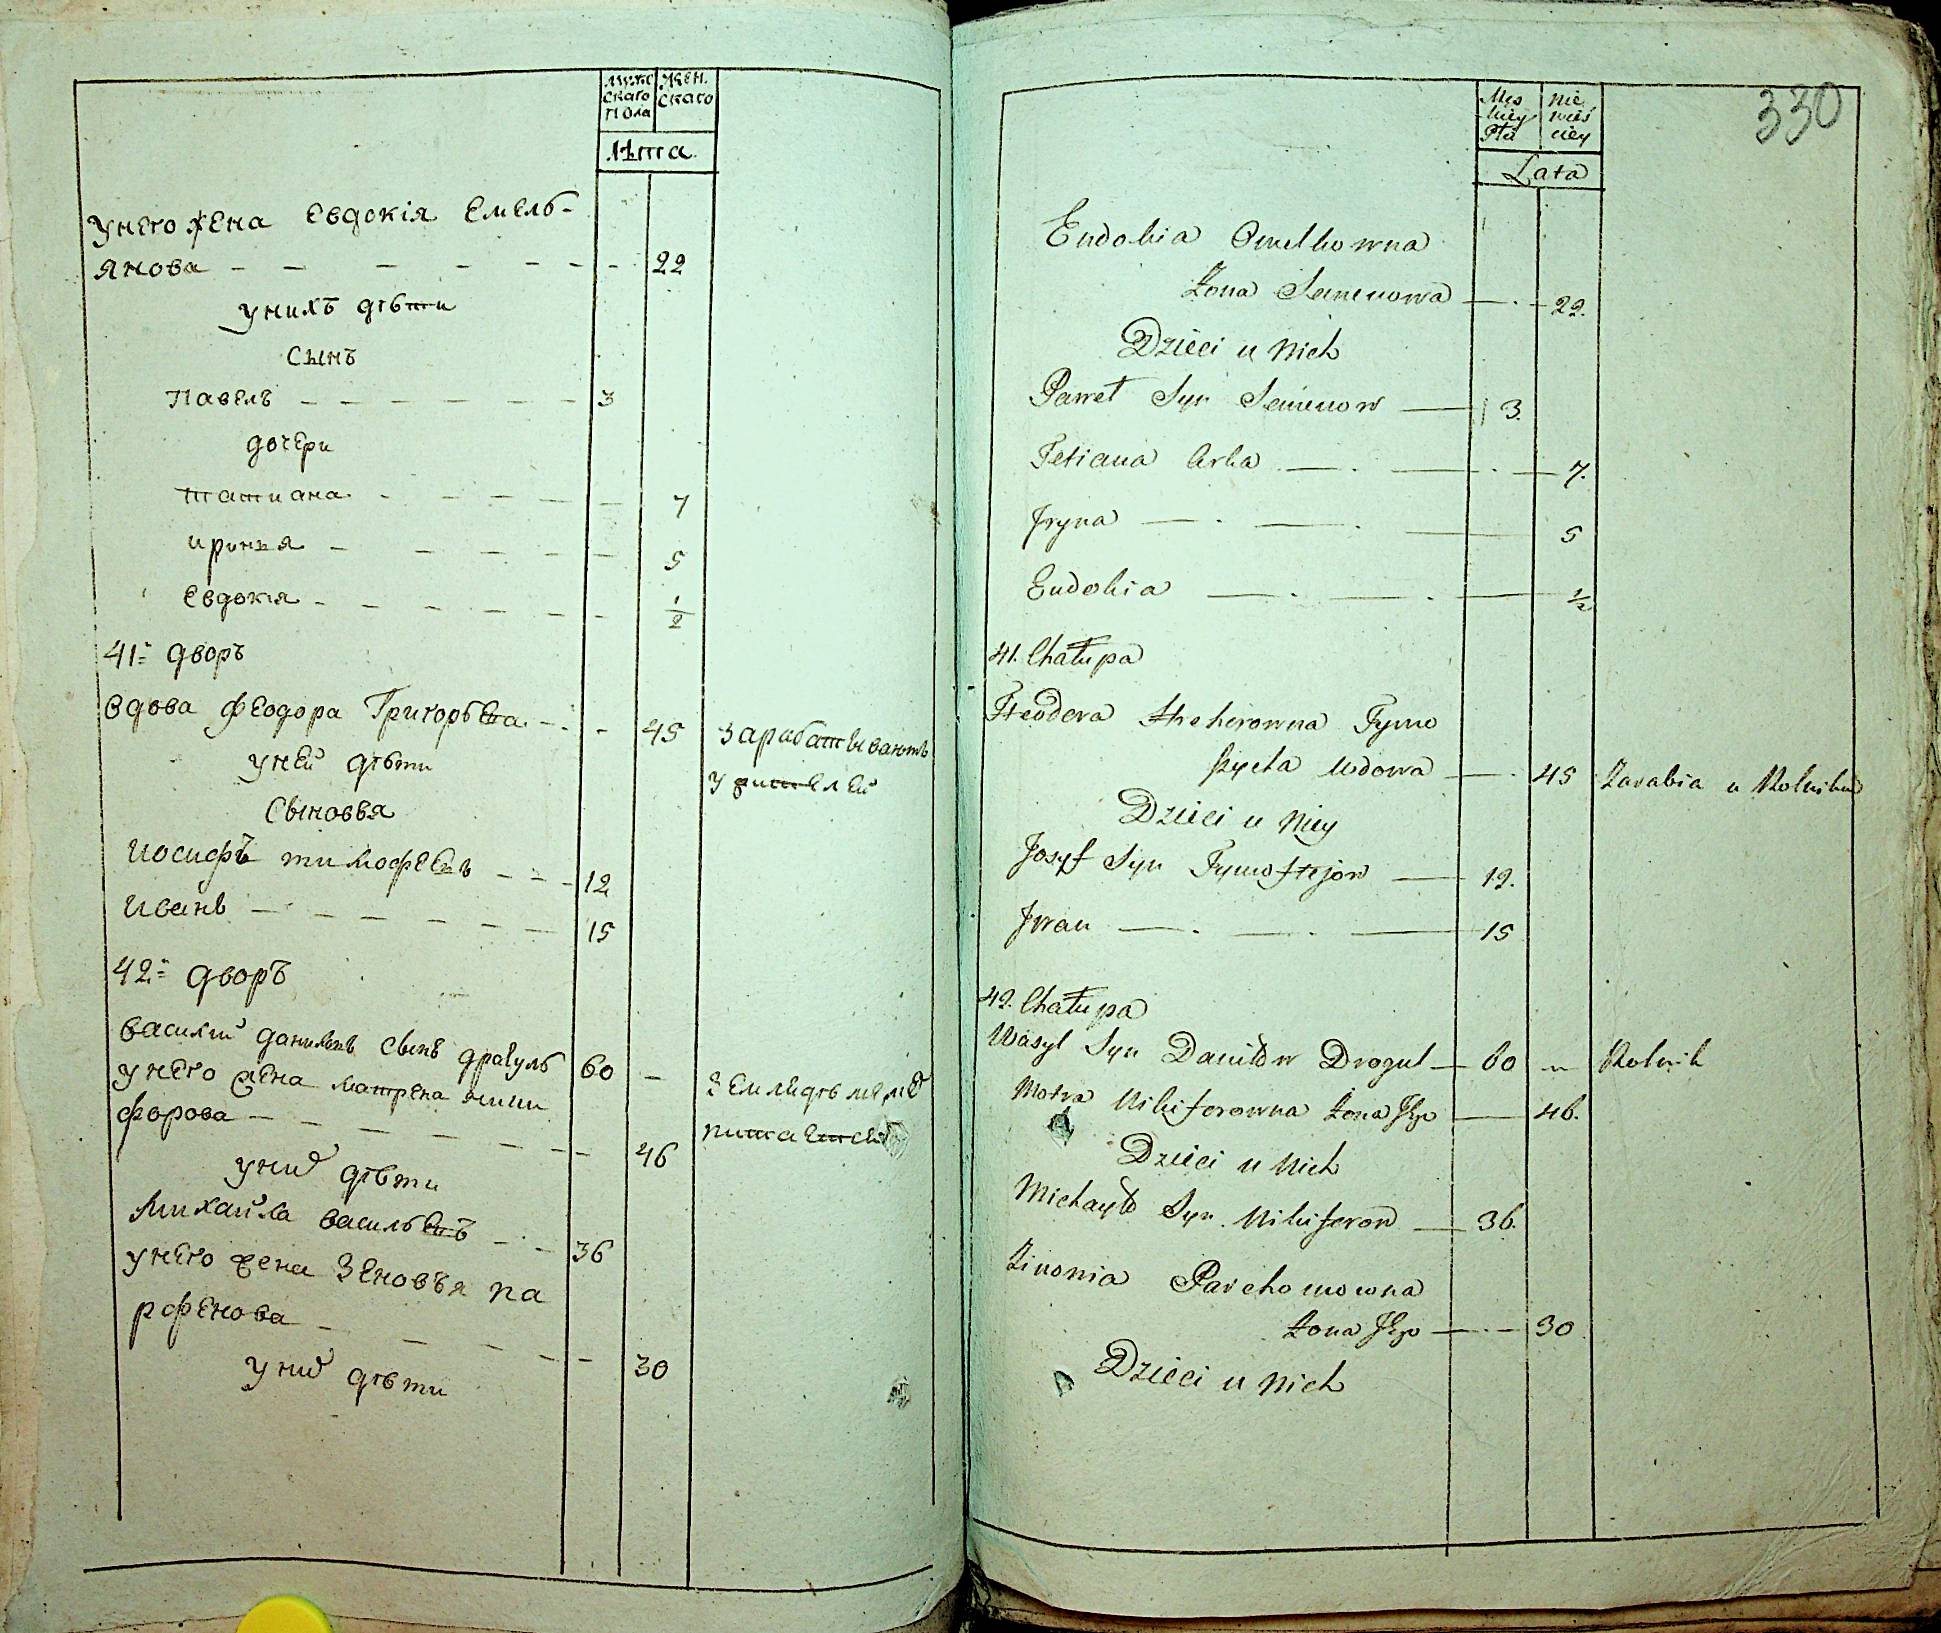 мужс
скаго
пола
жен.
скаго
лѣта.
унего жена Евдокія Емель-
янова 22
унихъ дѣти
сынъ
Павелъ 3
дочери
татиана 7
иринья 5
Евдокия 1/2
41- дворъ
вдова феодора Григорьева 45 зарабатывають
уней дѣти у жителей
Сыновья
иосифъ тимофеевъ 12
иванъ 15
42- дворъ
василий данилевъ сынъ драгулъ 60 –
унего жена матрена ники
форова 46 питается
уних дѣти
михайла васильевъ 36
унего жена Зеновья па
рфенова 30
уних дѣти
330
Męs
kiey
Płci
nie
wieś
ciey
Lata
Eudokia Omelkowna
Zona Semenowa 22.
Dzieci u Nich
Paweł Syn Semenow 3.
Tetiana Corka 7.
Jryna 5
Eudokia 1/2
41. Chałupa
Fteodora Hrehorowna Tymo
szycha Wdowa 45 Zarabia u Rolnikow
Dzieci u Niey
Josyf Syn Tymoftejow 12.
Jwan 15
42. Chałupa
Wasyl Syn Daniłow Drogul 60 Rolnik
Motra Nikiforowna Zona Jego 46.
Dzieci u Nich
Michayło Syn Nikiforow 36.
Zinowia Parchomowna
Zona Jego 30
Dzieci u Nich